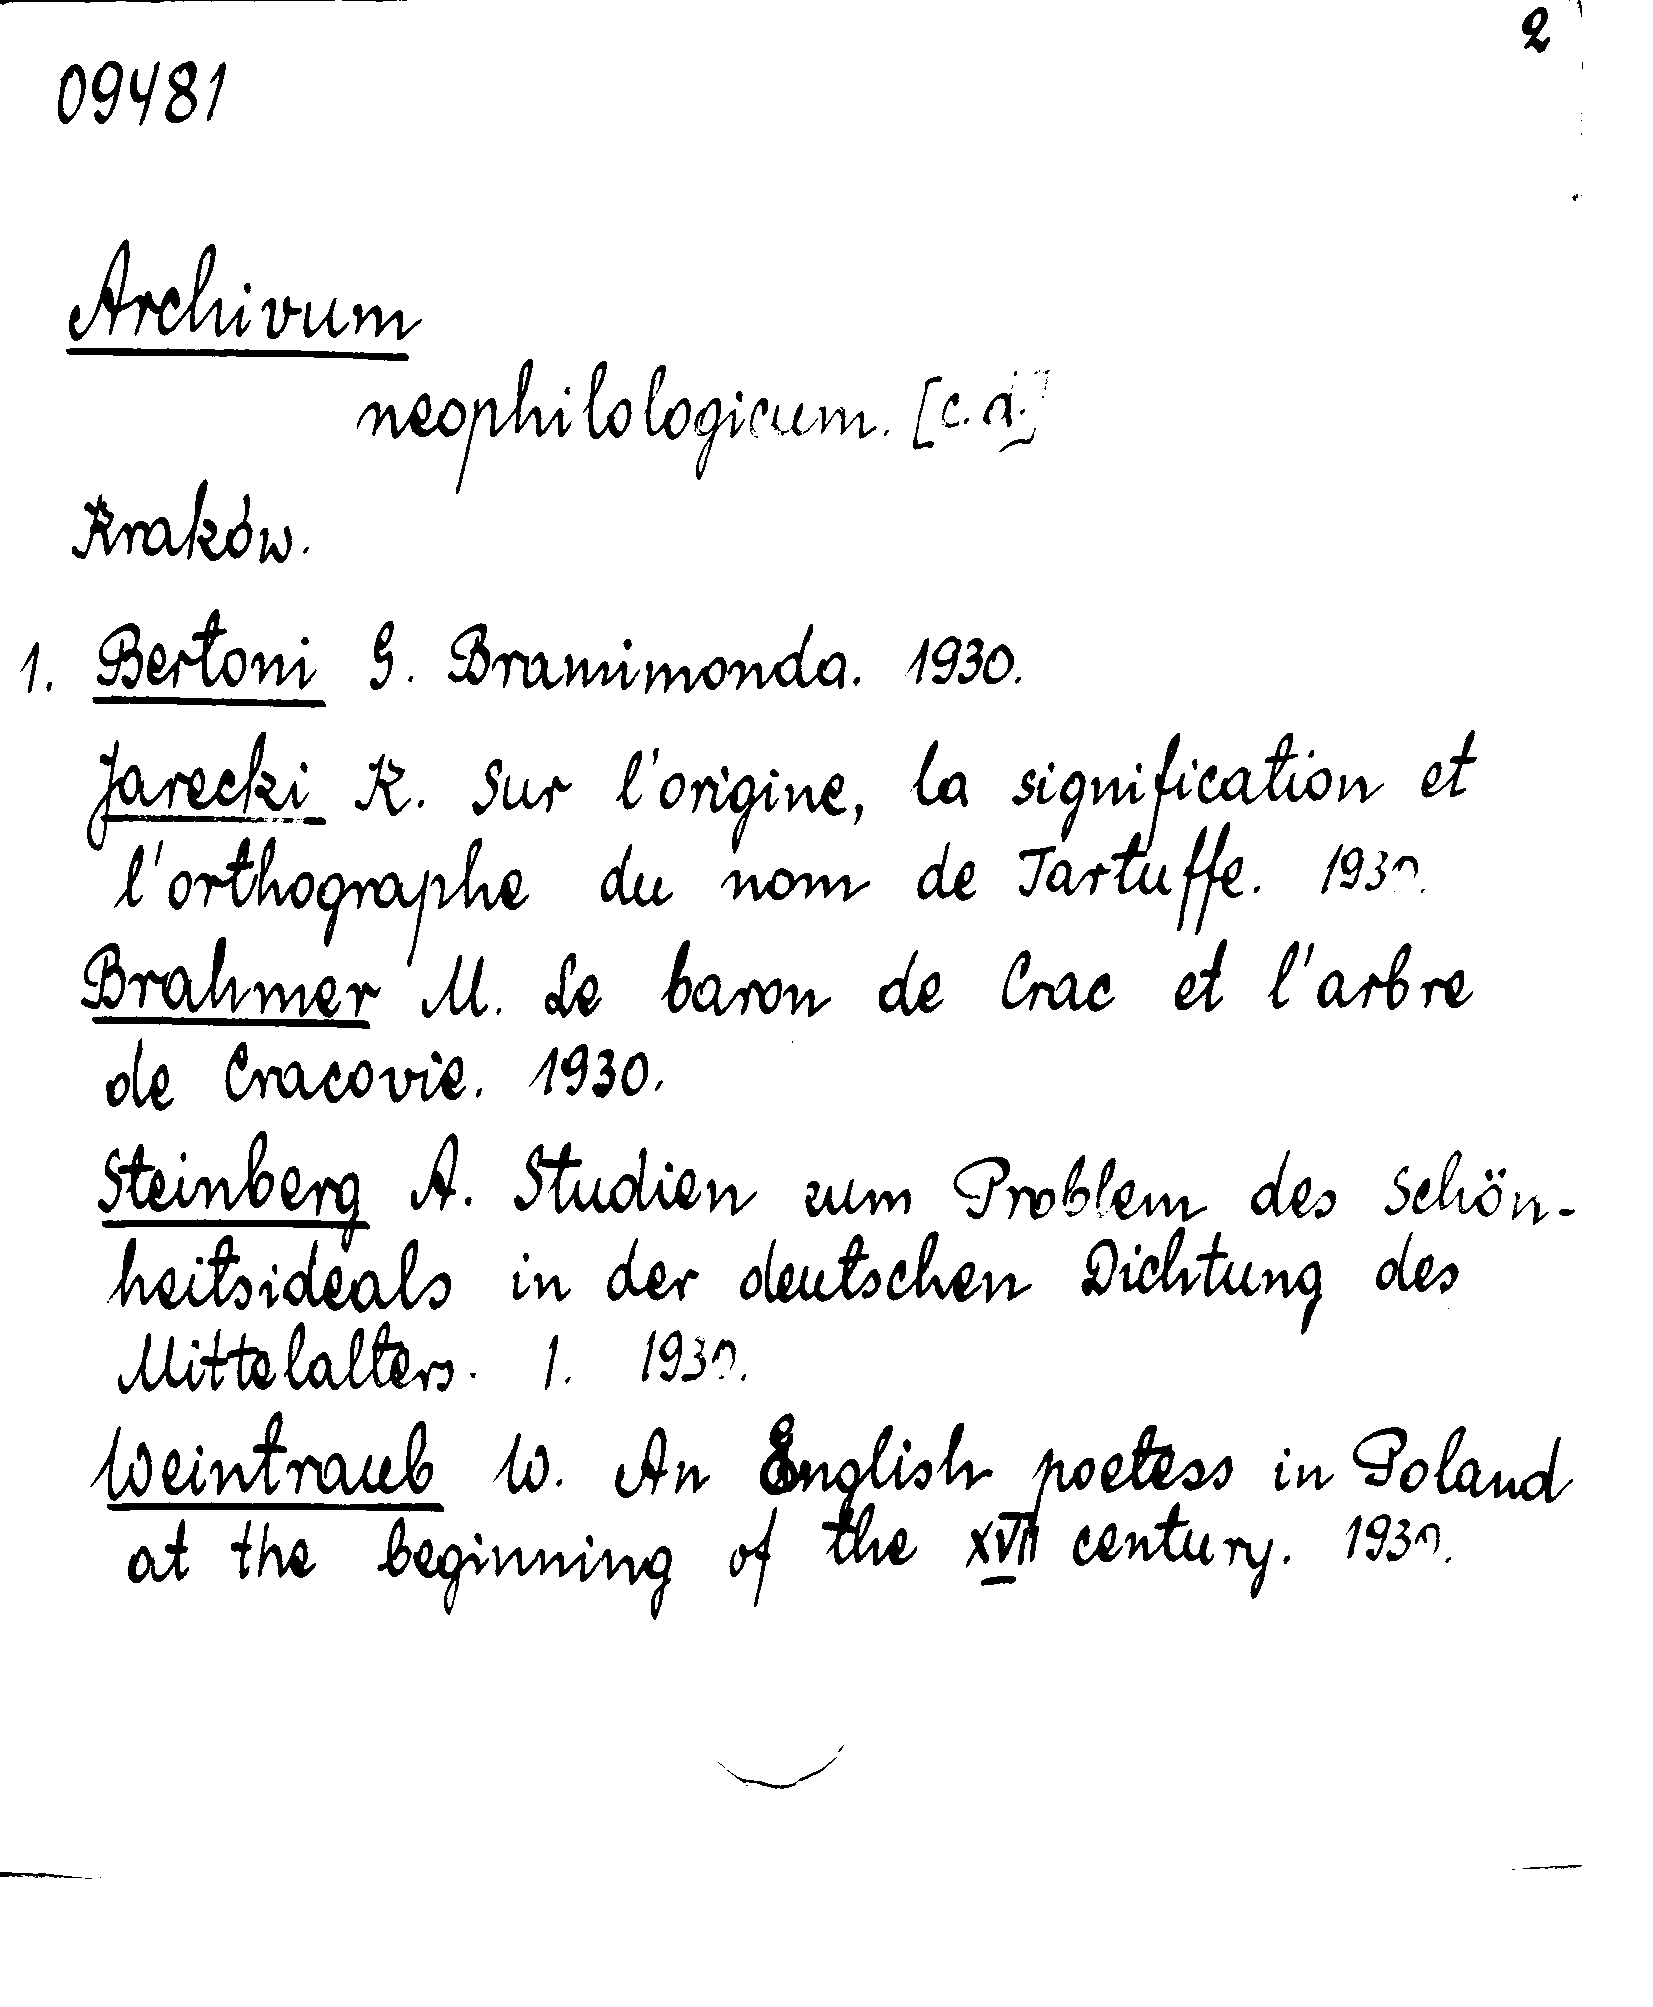 2
09481
Archivum
neophilologicum. [c.d.]
Kraków.
1. Bertoni G. Bramimonda. 1930.
Jarecki K. Sur l'origine, la signification et
l'orthographe du nom de Tartuffe. 1930.
Brahmer M. Le baron de Crac et l'arbre
de Cracovie. 1930.
Steinberg A. Studien zum Problem des Schön-
heitsideals in der deutschen Dichtung des
Mittelalters. 1. 1930.
Weintraub W. An English poetess in Poland
at the beginning of the XVII century. 1930.